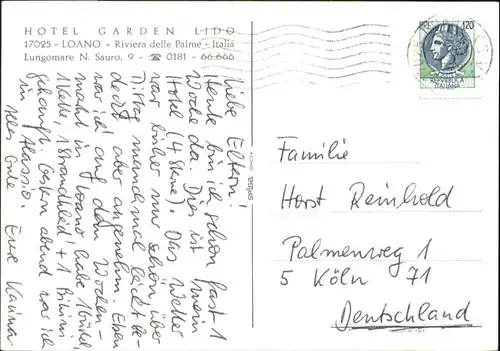 HOTEL GARDEN LIDO
17025 - LOANO - Riviera delle Palme - Italia
Lungomare N. Sauro, 9 - ☎ 0181 - 66.666
Liebe Eltern!
Heute bin ich schon fast 1
Woche da. Dies ist mein
Hotel (4 Sterne). Das Wetter
war bisher nur schön, über
Mittag manchmal leicht be-
deckt aber angenehm. Eben
war ich auf dem Wochen-
markt in Loano habe
1 Kette, 1 Strandkleid + 1 Bikini
gekauft. Gestern abend war ich
in Alassio.
Alles Gute Eure Karina
120
REPVBBLICA
ITALIANA
Familie
Horst Reinhold
Palmenweg 1
5 Köln 71
Deutschland